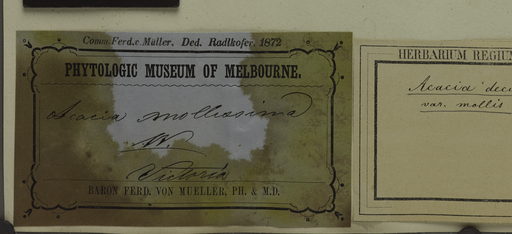 Comm. Ferd. c Muller. Ded. Radlkofer. 1872
PHYTOLOGIC MUSEUM OF MELBOURNE.
Acacia mollissima
W.
Victoria
BARON FERD. VON MUELLER, PH. & M.D.
HERBARIUM REGIU
Acacia dec
var. mollis